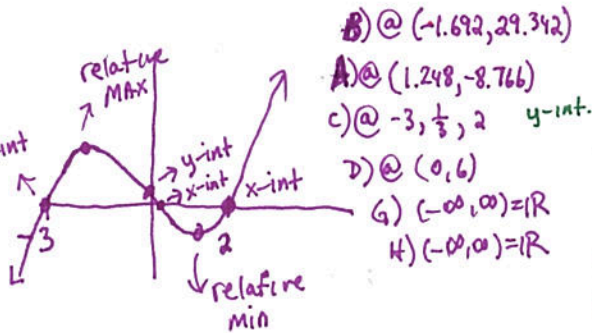 relative
MAX
int
y-int
x-int
x-int
-3
2
relative
min
B) @ (-1.692, 29.342)
A) @ (1.248, -8.766)
C) @ -3, 1/3, 2 y-int.
D) @ (0,6)
G) (-∞,∞)=ℝ
H) (-∞,∞)=ℝ